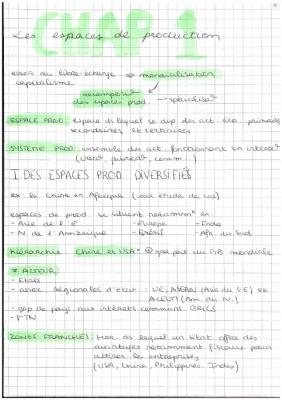 CHAP 1
Les espaces de production
essor du libre-échange → mondialisation
capitalisme
des espaces prod → spécialisé
ESPACE PROD espace ds lequel se dvp des act. éco primaires
secondaires et tertiaires
SYSTEME PROD ensemble des act. fonctionnant en interact°
I DES ESPACES PROD DIVERSIFIÉS
ex. la Chine en Afrique (voir étude de cas)
espaces de prod se situent notamm° en :
- Asie de l'E - Europe - Inde
- N de l'Amérique - Brésil - Afr. du Sud
hiérarchie Chine et USA = gde part du PIB mondial
* ACTEUR
- Etats
- assoc. régionales d'etat : UE, ASEAN (Asie du S-E) et
(Am. du N.)
- gpe de pays aux intérêts communs BRICS
- FTN
ZONES FRANCHES ds lequel un Etat offre des
avantages notamment fiscaux pour
attirer les entreprises
(USA, Chine, Philippines, Inde)